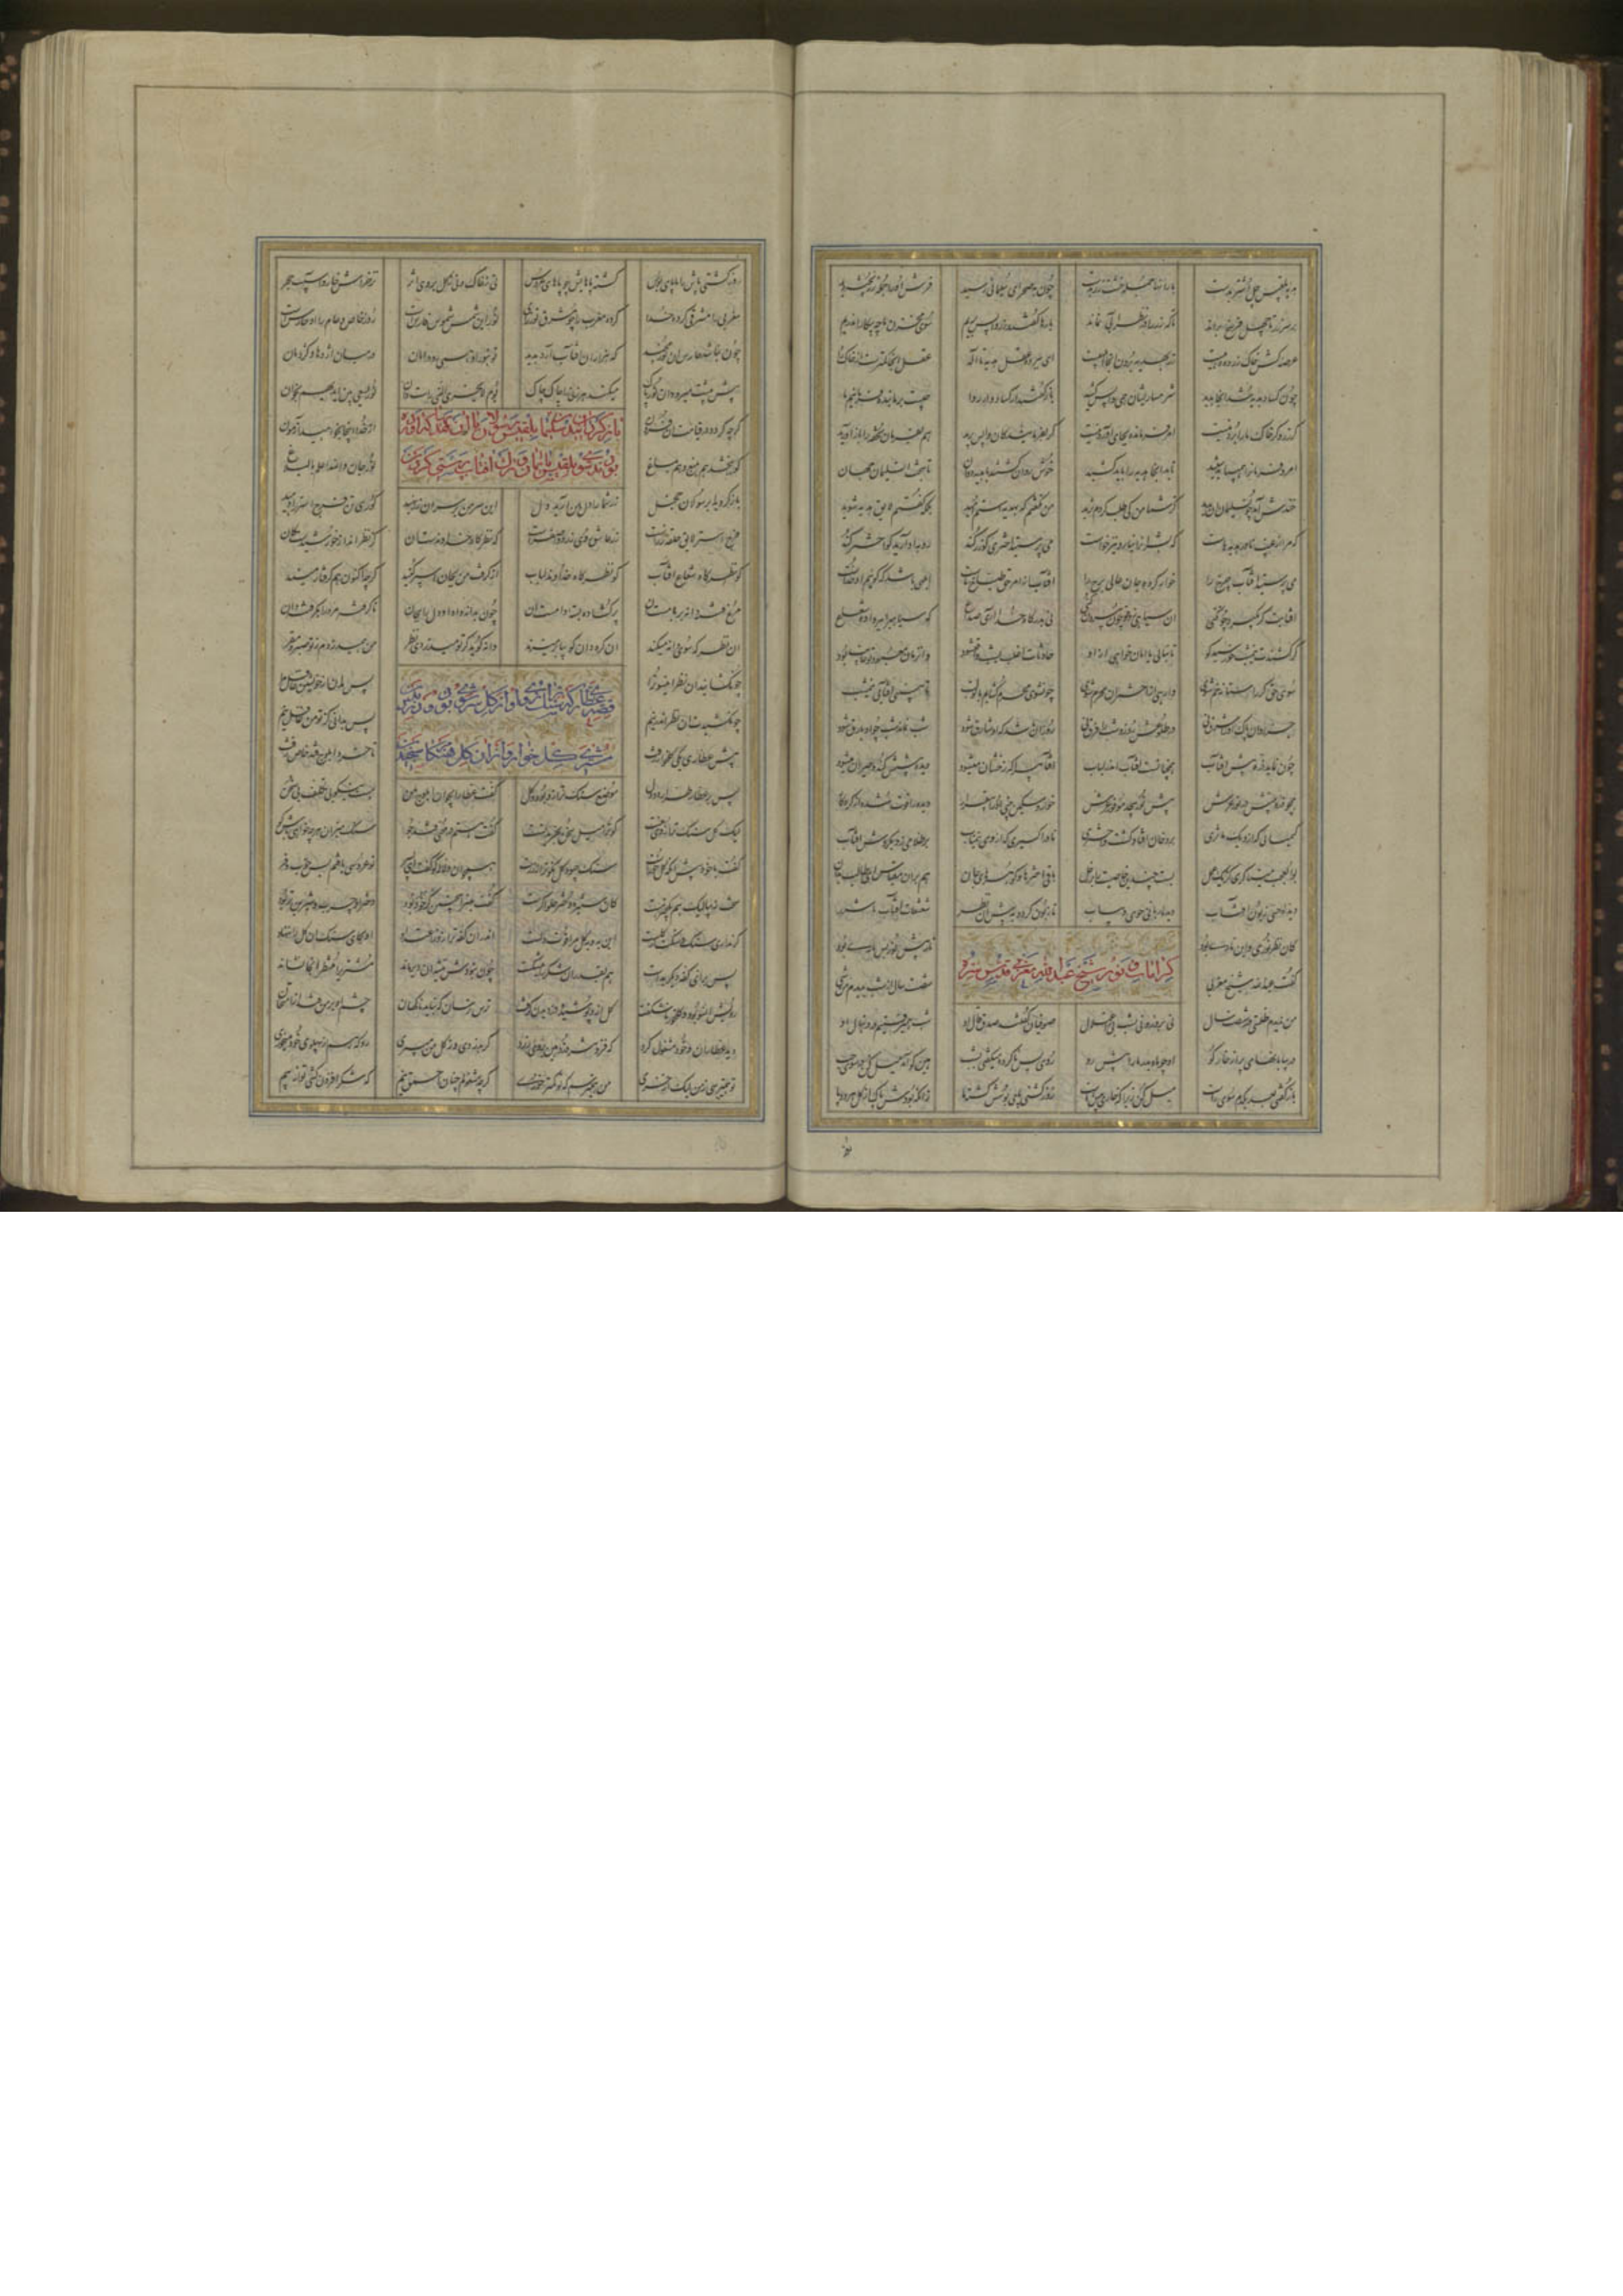 هدیه بلقیس چل اشتر بدست بار آنها جمله خشت زر بدست چون به صحرای سلیمانی رسید فرش آنرا جمله زر پخته دید
بر سر زر تا چهل منزل براند تا که زر را در نظر آبی نماند بارها گفتند زر را واپس بریم سوی مخزن ما چه پیکار اندریم
عرصه کش خاک زر ده دهیست زر بهدیه بردن آنجا ابلهیست ای ببرده عقل هدیه تا اله عقل آنجا کمترست از خاک راه
چون کساد هدیه شد آنجا پدید شرمساریشان همی واپس کشید باز گفتند ار کساد و ار روا چیست بر ما بنده فرمانیم ما
گر زر و گر خاک ما را بردنیست امر فرمانده بجای آوردنیست گر بفرمایند کان واپس برید هم بفرمان تحفه را باز آورید
امر و فرمان را همیباید شنید تا بدانجا هدیه را باید کشید خوش روان گشتند با هدیه روان تا بتخت آن سلیمان جهان
خنده‌ش آمد چون سلیمان آن بدید کز شما من کی طلب کردم ثرید من نگفتم که مرا هدیه دهید بلکه گفتم لایق هدیه شوید
که مرا از غیب نادر هدیهاست که بشر آنرا نیارد نیز خواست می پرستید اختری کو زر کند رو باو آرید کو اختر کند
می پرستید آفتاب چرخ را خوار کرده جان عالی نرخ را آفتاب از امر حق طباخ ماست ابلهی باشد که گویم او خداست
آفتابت گر بگیرد چون کنی آن سیاهی زو تو چون بیرون کنی نی بدرگاه خدا آری صداع که سیاهی را ببر واده شعاع
گر کشندت نیمشب خورشید کو تا بنالی یا امان خواهی ازو حادثات اغلب بشب واقع شود وان زمان معبود تو غایب بود
سوی حق گر راستانه خم شوی وارهی از اختران محرم شوی چون شوی محرم گشایم با تو لب تا ببینی آفتابی نیمشب
جز روان پاک او را شرق نی در طلوعش روز و شب را فرق نی روز آن باشد که او شارق شود شب نماند شب چو او بارق شود
چون نماید ذره پیش آفتاب همچنانست آفتاب اندر لباب آفتابی را که رخشان میشود دیده پیشش کند و حیران میشود
همچو ذره بینیش در نور عرش پیش نور بیحد موفور عرش خوار و مسکین بینی او را بیقرار دیده را قوت شده از کردگار
کیمیایی که ازو یک ماثری بر دخان افتاد گشت اختری نادر اکسیری که از وی نیم تاب بر ظلامی زد بکردش آفتاب
بوالعجب میناگری کز یک عمل بست چندین خاصیت را بر زحل باقی اخترها و گوهرهای جان هم بران مقیاس ای طالب بدان
دیده حسی زبون آفتاب دیده ربانی جوی و بیاب تا زبون گردد به پیش آن نظر شعشعات آفتاب با شرر
کان نظر نوری و این ناری بود نار پیش نور بس تاری بود
کرامات و نور شیخ عبدالله مغربی قدس سره
گفت عبدالله شیخ مغربی شصت سال از شب ندیدم من شبی
من ندیدم ظلمتی در شصت سال نی بروز و نی بشب نی ز اعتلال صوفیان گفتند صدق قال او شب همیرفتیم در دنبال او
در بیابانهای پر از خار و گو او چو ماه بدر ما را پیش رو روی پس ناکرده میگفتی بشب هین گو آمد میل کن در سوی چپ
باز گفتی بعد یکدم سوی راست میل کن زیرا که خاری پیش پاست روز گشتی پای بوسش گشته ما زانکه بودش پاک از گل هر دو پا
روز گشتی پاش را ما پای بوس گشته پاهایش چو پاهای عروس نی ز خاک و نی ز گل بر وی اثر نز خراش خار و آسیب حجر
مغربی را مشرقی کرده خدا کرده مغرب را چو مشرق نورزای نور این شمس شموس فارس است روز خاص و عام را او حارس است
چون نباشد حارس آن نور مجید که هزاران آفتاب آرد پدید تو بنور او همی رو در امان در میان اژدها و کژدمان
پیش پیشت میرود آن نور پاک میکند هر رهزنی را چاک چاک یوم لا یخزی النبی راست دان نور یسعی بین ایدیهم بخوان
گرچه گردد در قیامت آن فزون از خدا اینجا بخواهید آزمون
باز گردانیدن سلیمان رسولان بلقیس را با آن هدیها که آورده بودند سوی بلقیس و دعوت بلقیس بایمان و ترک آفتاب پرستی کردن
کو ببخشد هم بمیغ و هم بماغ نور جان والله اعلم بالبلاغ
باز گردید ای رسولان خجل زر شما را دل بمن آرید دل این زر من بر سر آن زر نهید کوری تن فرج استر را دهید
فرج استر لایق حلقه زرست زر عاشق روی زرد اصفرست که نظرگاه خداوندست آن کز نظر انداز خورشیدست کان
کو نظرگاه شعاع آفتاب کو نظرگاه خداوند لباب از گرفت من ز جان اسپر کنید گرچه اکنون هم گرفتار منید
مرغ فتنه دانه بر بامست آن پر گشاده بسته دامست آن چون بدانه داد او دل را بجان ناگرفته مر ورا بگرفته دان
آن نظر که سوی دانه میکند آن گره دان کو بپا بر میزند دانه گوید گر تو میدزدی نظر من همی دزدم ز تو صبر و مقر
قصه عطاری که سنگ ترازوی او از گل سرشوی بود و دزدیدن مشتری گل خوار از آن گل هنگام سنجیدن
چون کشیدت آن نظر اندر پیم پس بدانی کز تو من غافل نیم
پیش عطاری یکی گلخوار رفت تا خرد ابلوج قند خاص زفت
پس بر عطار طرار دو دل موضع سنگ ترازو بود گل گفت عطار ای جوان ابلوج من هست نیکو بی تکلف بی سخن
لیک گل سنگ ترازوی منست گر ترا میل شکر بخریدنست گفت هستم در مهمی قند جو سنگ میزان هر چه خواهی باش گو
گفت با خود پیش آنکه گل خورست سنگ چبود گل نکوتر از زرست همچو آن دلاله که گفت ای پسر نو عروسی یافتم بس خوب فر
سخت زیبا لیک هم یک چیز هست کان ستیره دختر حلواگرست گفت بهتر این چنین گر خود بود دختر او چرب و شیرین تر بود
گر نداری سنگ و سنگت از گلست این به و به گل مرا قوت دلست اندر آن کفه ترازو ز اعتداد او بجای سنگ آن گل را نهاد
پس برای کفه دیگر بدست هم بقدر آن شکر را میشکست چون نبودش تیشه آن دیر ماند مشتری را منتظر آنجا نشاند
رویش آن سو بود گلخور ناشکفت گل ازو پوشیده دزدیدن گرفت ترس ترسان که نباید ناگهان چشم او بر من فتد از امتحان
دید عطار آن و خود مشغول کرد که فزونتر دزد هین ای روی زرد گر بدزدی وز گل من میبری رو که هم از پهلوی خود میخوری
تو همی ترسی ز من لیک از خری من همی ترسم که تو کمتر خوری گرچه مشغولم چنان احمق نیم که شکر افزون کشی تو از نیم